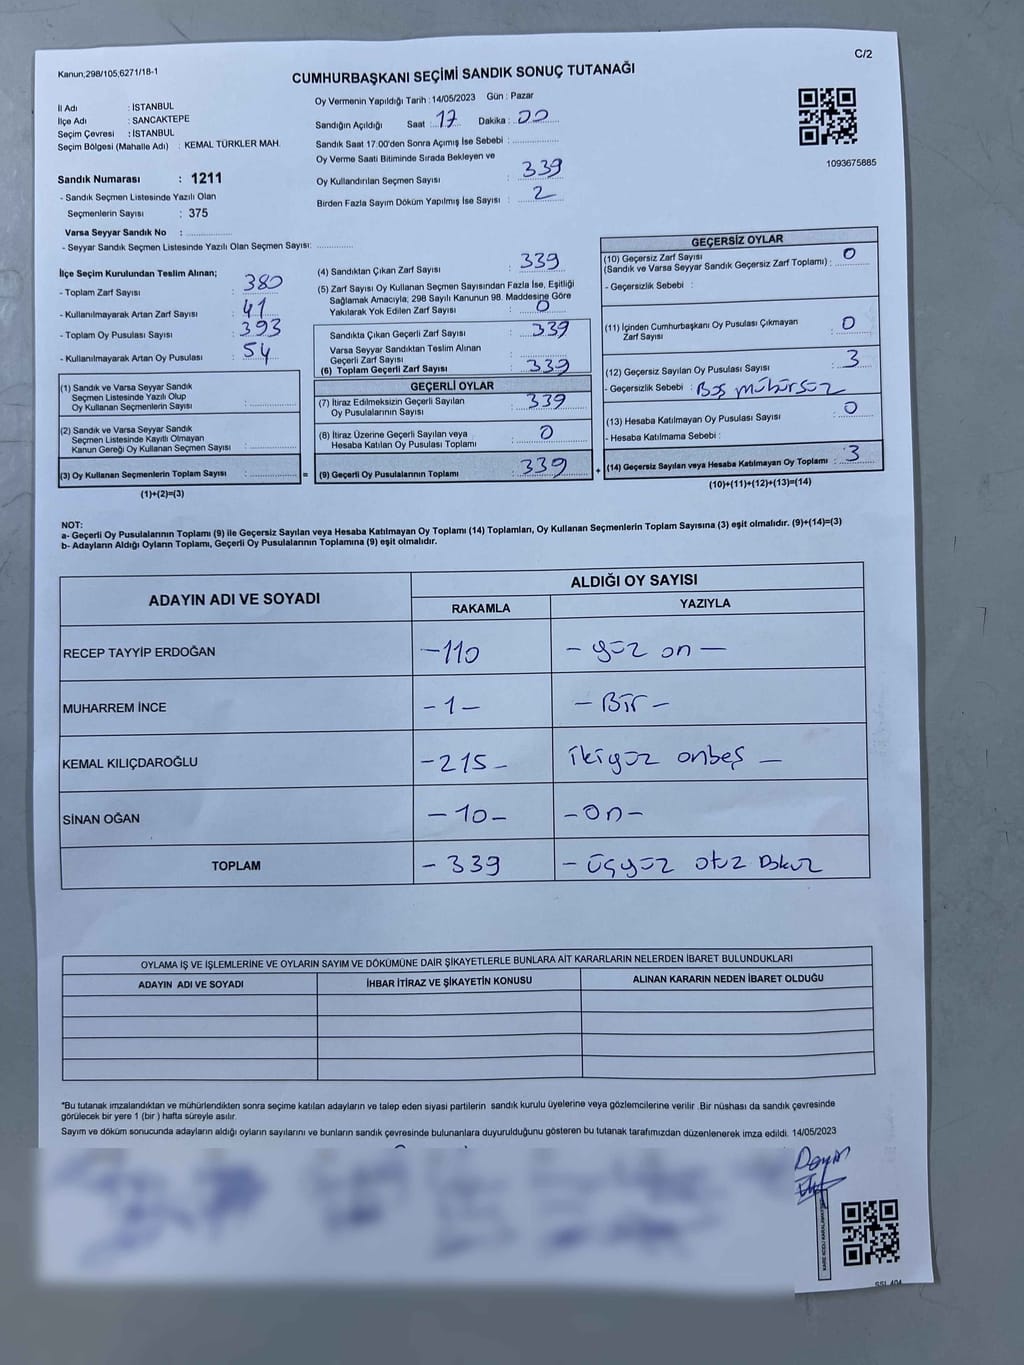 C/2
Kanun;298/105,6271/18-1
CUMHURBAŞKANI SEÇİMİ SANDIK SONUÇ TUTANAĞI
İl Adı : İSTANBUL
İlçe Adı : SANCAKTEPE
Seçim Çevresi : İSTANBUL
Seçim Bölgesi (Mahalle Adı) : KEMAL TÜRKLER MAH.
Sandık Numarası : 1211
- Sandık Seçmen Listesinde Yazılı Olan
Seçmenlerin Sayısı : 375
Varsa Seyyar Sandık No :
- Seyyar Sandık Seçmen Listesinde Yazılı Olan Seçmen Sayısı:
Oy Vermenin Yapıldığı Tarih : 14/05/2023 Gün : Pazar
Sandığın Açıldığı Saat : 17 Dakika : 00
Sandık Saat 17.00'den Sonra Açılmış İse Sebebi :
Oy Verme Saati Bitiminde Sırada Bekleyen ve
Oy Kullandırılan Seçmen Sayısı : 339
Birden Fazla Sayım Döküm Yapılmış İse Sayısı : 2
1093675885
İlçe Seçim Kurulundan Teslim Alınan;
- Toplam Zarf Sayısı : 380
- Kullanılmayarak Artan Zarf Sayısı : 41
- Toplam Oy Pusulası Sayısı : 393
- Kullanılmayarak Artan Oy Pusulası : 54
(1) Sandık ve Varsa Seyyar Sandık
Seçmen Listesinde Yazılı Olup
Oy Kullanan Seçmenlerin Sayısı :
(2) Sandık ve Varsa Seyyar Sandık
Seçmen Listesinde Kayıtlı Olmayan
Kanun Gereği Oy Kullanan Seçmen Sayısı :
(3) Oy Kullanan Seçmenlerin Toplam Sayısı : =
(1)+(2)=(3)
(4) Sandıktan Çıkan Zarf Sayısı : 339
(5) Zarf Sayısı Oy Kullanan Seçmen Sayısından Fazla İse, Eşitliği
Sağlamak Amacıyla, 298 Sayılı Kanunun 98. Maddesine Göre
Yakılarak Yok Edilen Zarf Sayısı : 0
Sandıkta Çıkan Geçerli Zarf Sayısı : 339
Varsa Seyyar Sandıktan Teslim Alınan
Geçerli Zarf Sayısı :
(6) Toplam Geçerli Zarf Sayısı : 339
GEÇERLİ OYLAR
(7) İtiraz Edilmeksizin Geçerli Sayılan
Oy Pusulalarının Sayısı : 339
(8) İtiraz Üzerine Geçerli Sayılan veya
Hesaba Katılan Oy Pusulası Toplamı : 0
(9) Geçerli Oy Pusulalarının Toplamı : 339 +
GEÇERSİZ OYLAR
(10) Geçersiz Zarf Sayısı
(Sandık ve Varsa Seyyar Sandık Geçersiz Zarf Toplamı) : 0
- Geçersizlik Sebebi :
(11) İçinden Cumhurbaşkanı Oy Pusulası Çıkmayan
Zarf Sayısı : 0
(12) Geçersiz Sayılan Oy Pusulası Sayısı : 3
- Geçersizlik Sebebi : Boş mühürsüz
(13) Hesaba Katılmayan Oy Pusulası Sayısı : 0
- Hesaba Katılmama Sebebi :
(14) Geçersiz Sayılan veya Hesaba Katılmayan Oy Toplamı : 3
(10)+(11)+(12)+(13)=(14)
NOT:
a- Geçerli Oy Pusulalarının Toplamı (9) ile Geçersiz Sayılan veya Hesaba Katılmayan Oy Toplamı (14) Toplamları, Oy Kullanan Seçmenlerin Toplam Sayısına (3) eşit olmalıdır. (9)+(14)=(3)
b- Adayların Aldığı Oyların Toplamı, Geçerli Oy Pusulalarının Toplamına (9) eşit olmalıdır.
ADAYIN ADI VE SOYADI
ALDIĞI OY SAYISI
RAKAMLA YAZIYLA
RECEP TAYYİP ERDOĞAN -110 - yüz on -
MUHARREM İNCE -1- - Bir -
KEMAL KILIÇDAROĞLU -215- ikiyüz onbeş -
SİNAN OĞAN -10- -On-
TOPLAM -339 - üçyüz otuz Dokuz
OYLAMA İŞ VE İŞLEMLERİNE VE OYLARIN SAYIM VE DÖKÜMÜNE DAİR ŞİKAYETLERLE BUNLARA AİT KARARLARIN NELERDEN İBARET BULUNDUKLARI
ADAYIN ADI VE SOYADI İHBAR İTİRAZ VE ŞİKAYETİN KONUSU ALINAN KARARIN NEDEN İBARET OLDUĞU
*Bu tutanak imzalandıktan ve mühürlendikten sonra seçime katılan adayların ve talep eden siyasi partilerin sandık kurulu üyelerine veya gözlemcilerine verilir .Bir nüshası da sandık çevresinde
görülecek bir yere 1 (bir ) hafta süreyle asılır.
Sayım ve döküm sonucunda adayların aldığı oyların sayılarını ve bunların sandık çevresinde bulunanlara duyurulduğunu gösteren bu tutanak tarafımızdan düzenlenerek imza edildi. 14/05/2023